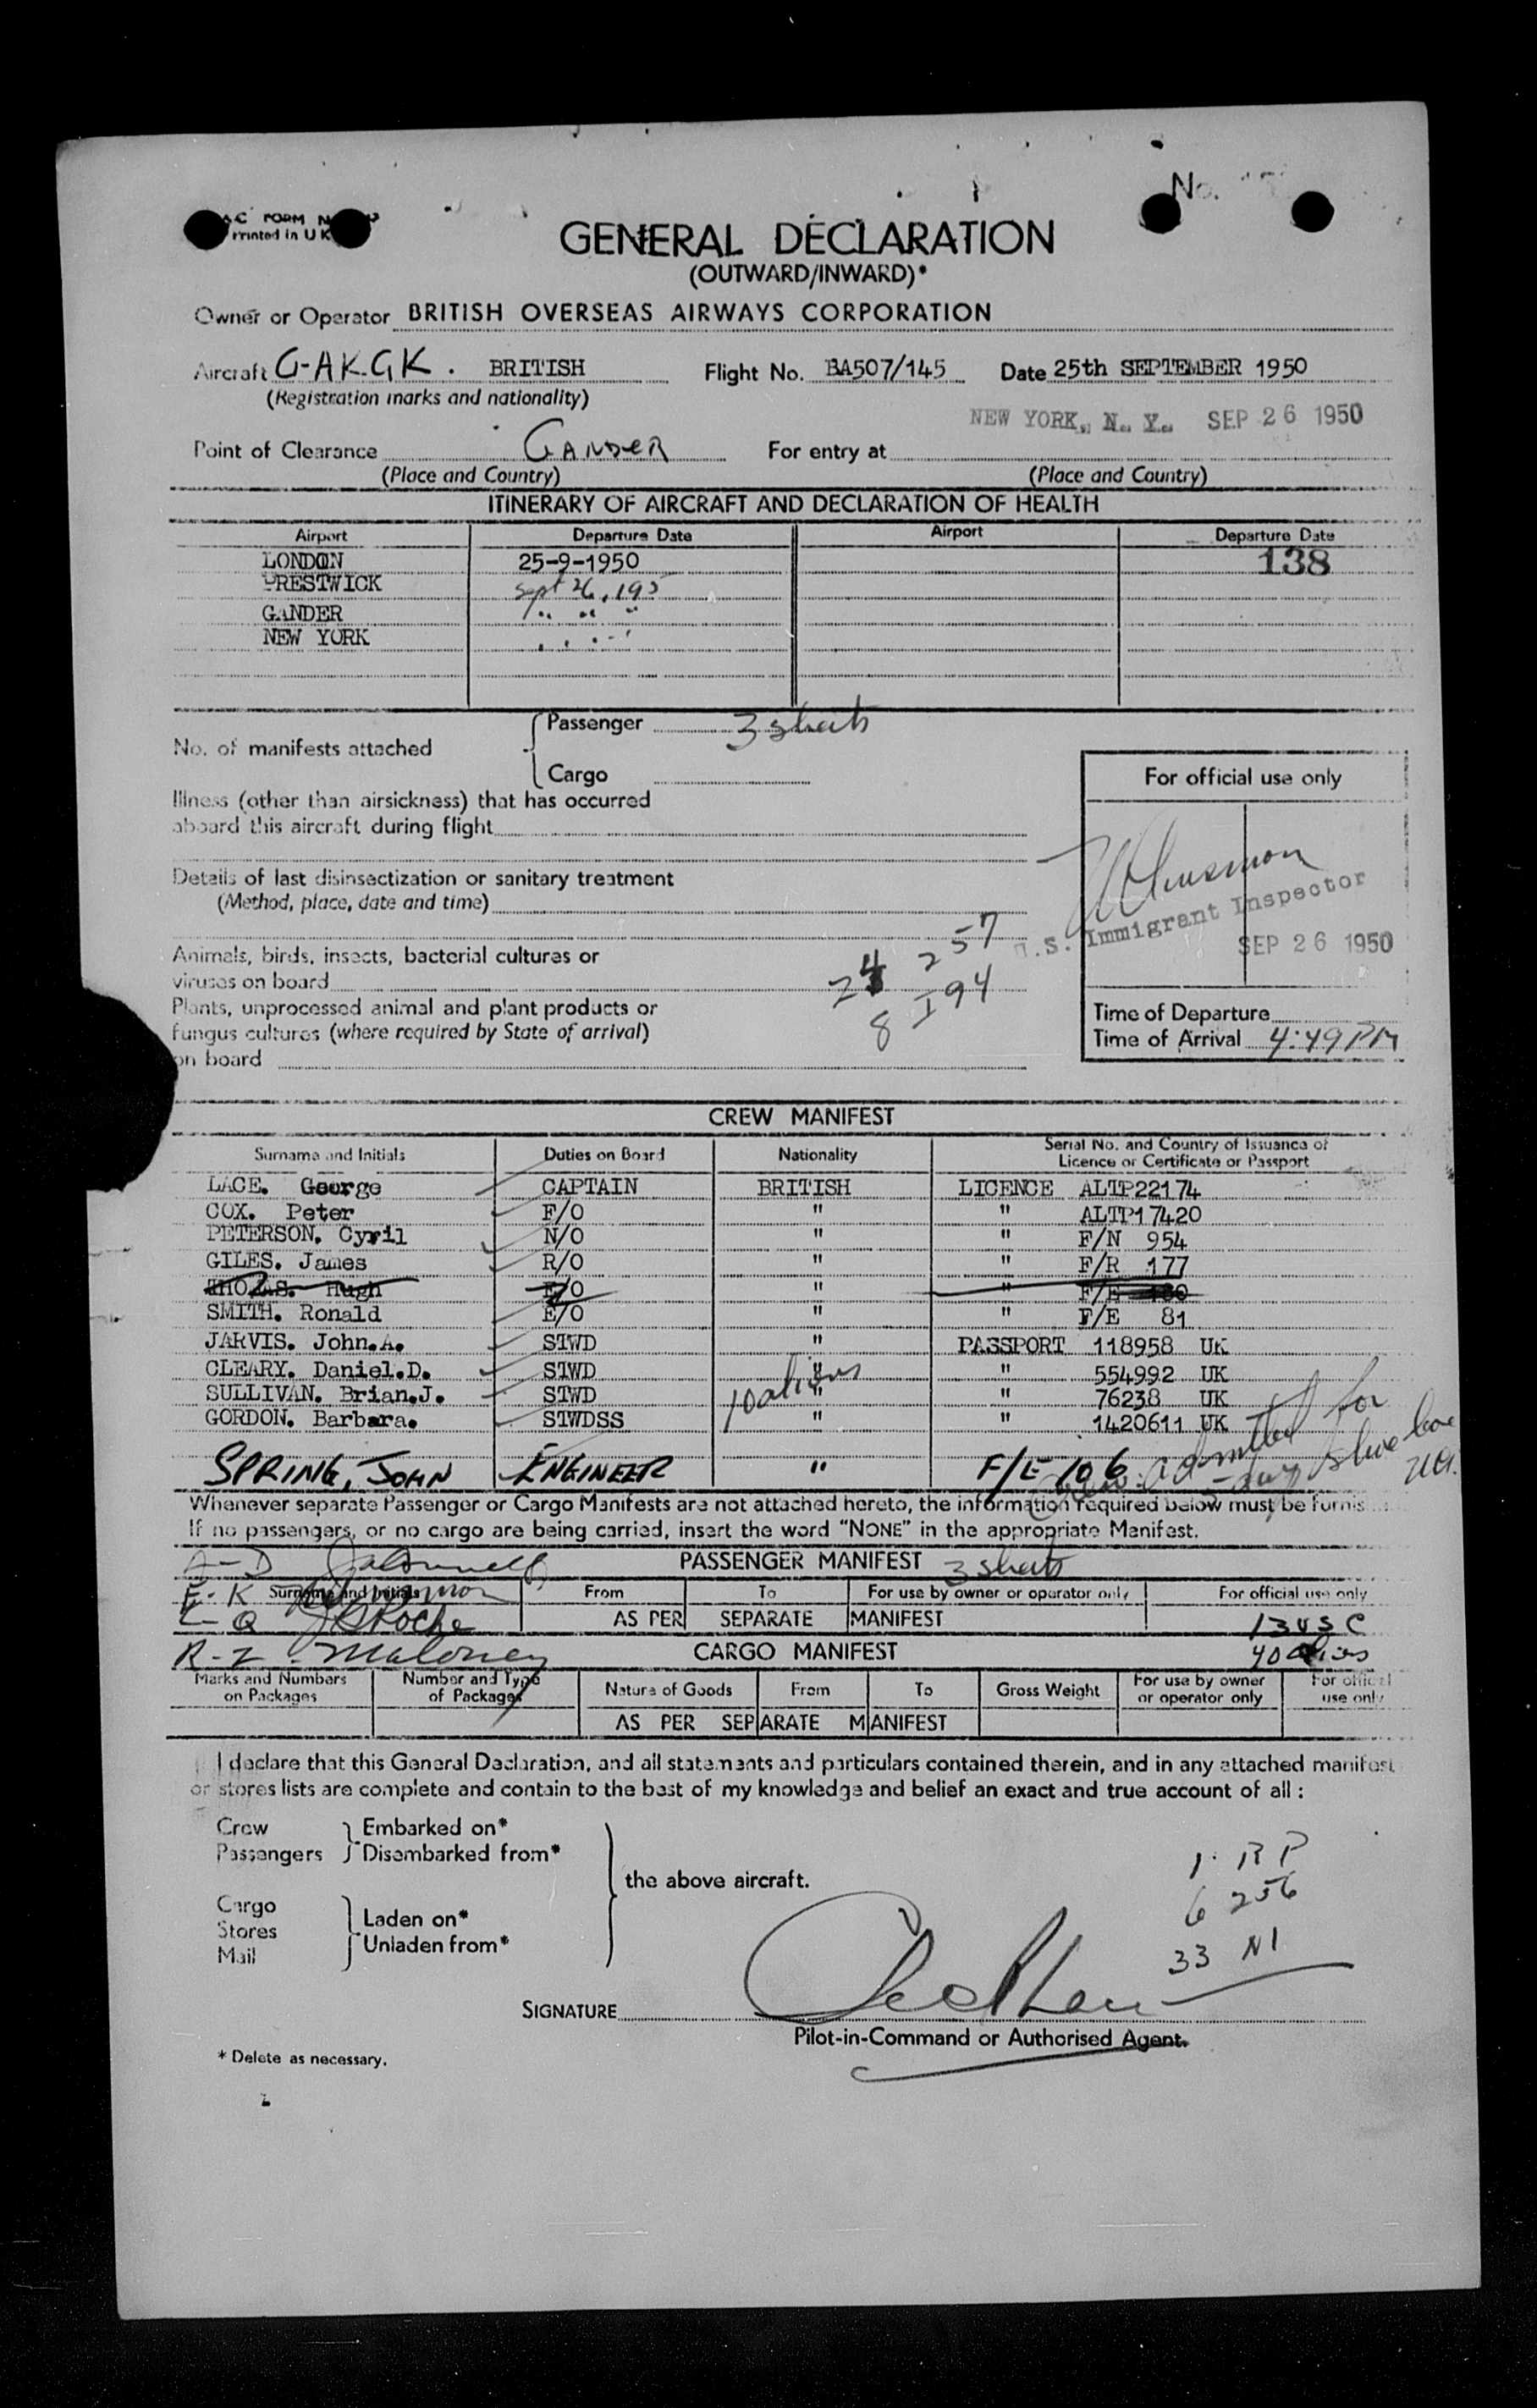 No.
FORM
Printed in U K
GENERAL DECLARATION
(OUTWARD/INWARD)*
Owner or Operator BRITISH OVERSEAS AIRWAYS CORPORATION
Aircraft G-AKGK. BRITISH Flight No. BA507/145 Date 25th SEPTEMBER 1950
(Registration marks and nationality)
NEW YORK, N. Y. SEP 26 1950
Point of Clearance GANDER For entry at
(Place and Country) (Place and Country)
ITINERARY OF AIRCRAFT AND DECLARATION OF HEALTH
Airport Departure Date Airport Departure Date
LONDON 25-9-1950 138
PRESTWICK Sept 26, 195
GANDER " " "
NEW YORK
Passenger 3 sheets
No. of manifests attached
Cargo
For official use only
Illness (other than airsickness) that has occurred
aboard this aircraft during flight
Details of last disinsectization or sanitary treatment
(Method, place, date and time)
U.S. Immigrant Inspector
SEP 26 1950
257
Animals, birds, insects, bacterial cultures or
viruses on board
24 I94
Plants, unprocessed animal and plant products or
fungus cultures (where required by State of arrival)
on board
8
Time of Departure
Time of Arrival 4:49 PM
CREW MANIFEST
Surname and Initials Duties on Board Nationality Serial No. and Country of Issuance of Licence or Certificate or Passport
LACE. George CAPTAIN BRITISH LICENCE ALTP22174
COX. Peter F/O " " ALTP17420
PETERSON. Cyril N/O " " F/N 954
GILES. James R/O " " F/R 177
THOMAS. Hugh E/O " " F/E
SMITH. Ronald E/O " " F/E 81
JARVIS. John.A. STWD " PASSPORT 118958 UK
CLEARY. Daniel.D. STWD " " 554992 UK
SULLIVAN. Brian.J. STWD " " 76238 UK
GORDON. Barbara. STWDSS " " 1420611 UK
10 aliens
SPRING, JOHN ENGINEER " F/E 106
admitted for
Whenever separate Passenger or Cargo Manifests are not attached hereto, the information required below must be furnis
If no passengers, or no cargo are being carried, insert the word "NONE" in the appropriate Manifest.
A-D PASSENGER MANIFEST 3 sheets
E-K Surname and Initials From To For use by owner or operator only For official use only
L-Q J Roche AS PER SEPARATE MANIFEST 13 USC
R-Z Maloney CARGO MANIFEST 40 aliens
Marks and Numbers on Packages Number and Type of Packages Nature of Goods From To Gross Weight For use by owner or operator only For official use only
AS PER SEPARATE MANIFEST
I declare that this General Declaration, and all statements and particulars contained therein, and in any attached manifest
or stores lists are complete and contain to the best of my knowledge and belief an exact and true account of all :
Crew Embarked on*
Passengers Disembarked from*
the above aircraft.
Cargo
Stores Laden on*
Mail Unladen from*
1 RP
6 256
33 NI
SIGNATURE
Pilot-in-Command or Authorised Agent.
* Delete as necessary.